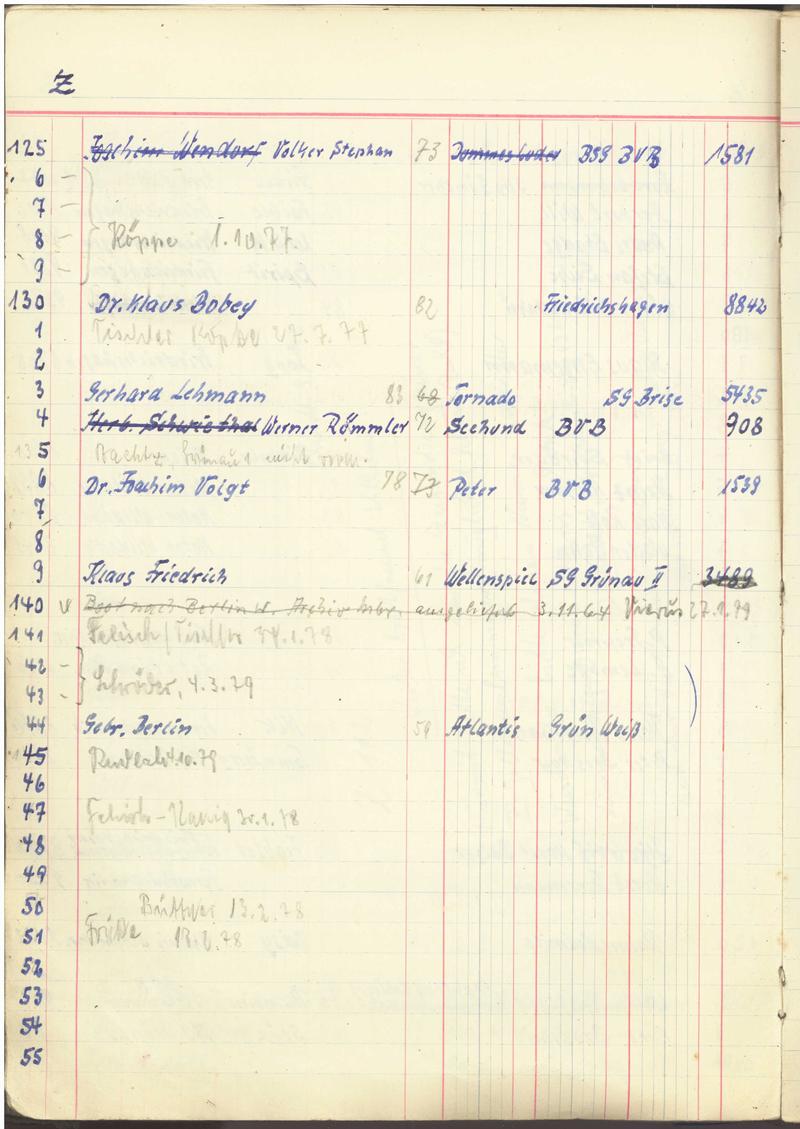 Z
125 Joachim Wendorf Volker Stephan 73 Dommesluder BSG BVB 1581
6 –
7 –
8 – Köppe 1.10.77.
9 –
130 Dr. Klaus Bobey 82 Friedrichshagen 8842
1 Tischler Köppe 27.7.77
2
3 Gerhard Lehmann 83 68 Tornado SG Brise 5435
4 Herb. Schwiethal Werner Römmler 72 Seehund BVB 908
135 nicht
6 Dr. Joachim Voigt 78 73 Peter BVB 1539
7
8
9 Klaus Friedrich 61 Wellenspiel SG Grünau II 3489
140 Boot nach Berlin W. ausgeliefert 3.11.64 27.1.79
141 1.78
42 –
43 – Schröder, 4.3.79
44 Gebr. Berlin 59 Atlantis Grün Weiß
45 4.10.79
46
47 30.1.78
48
49
50 Büttner 13.2.78
51 13.2.78
52
53
54
55